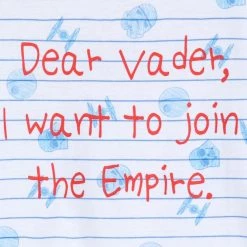 Dear Vader,
I want to join
the Empire.